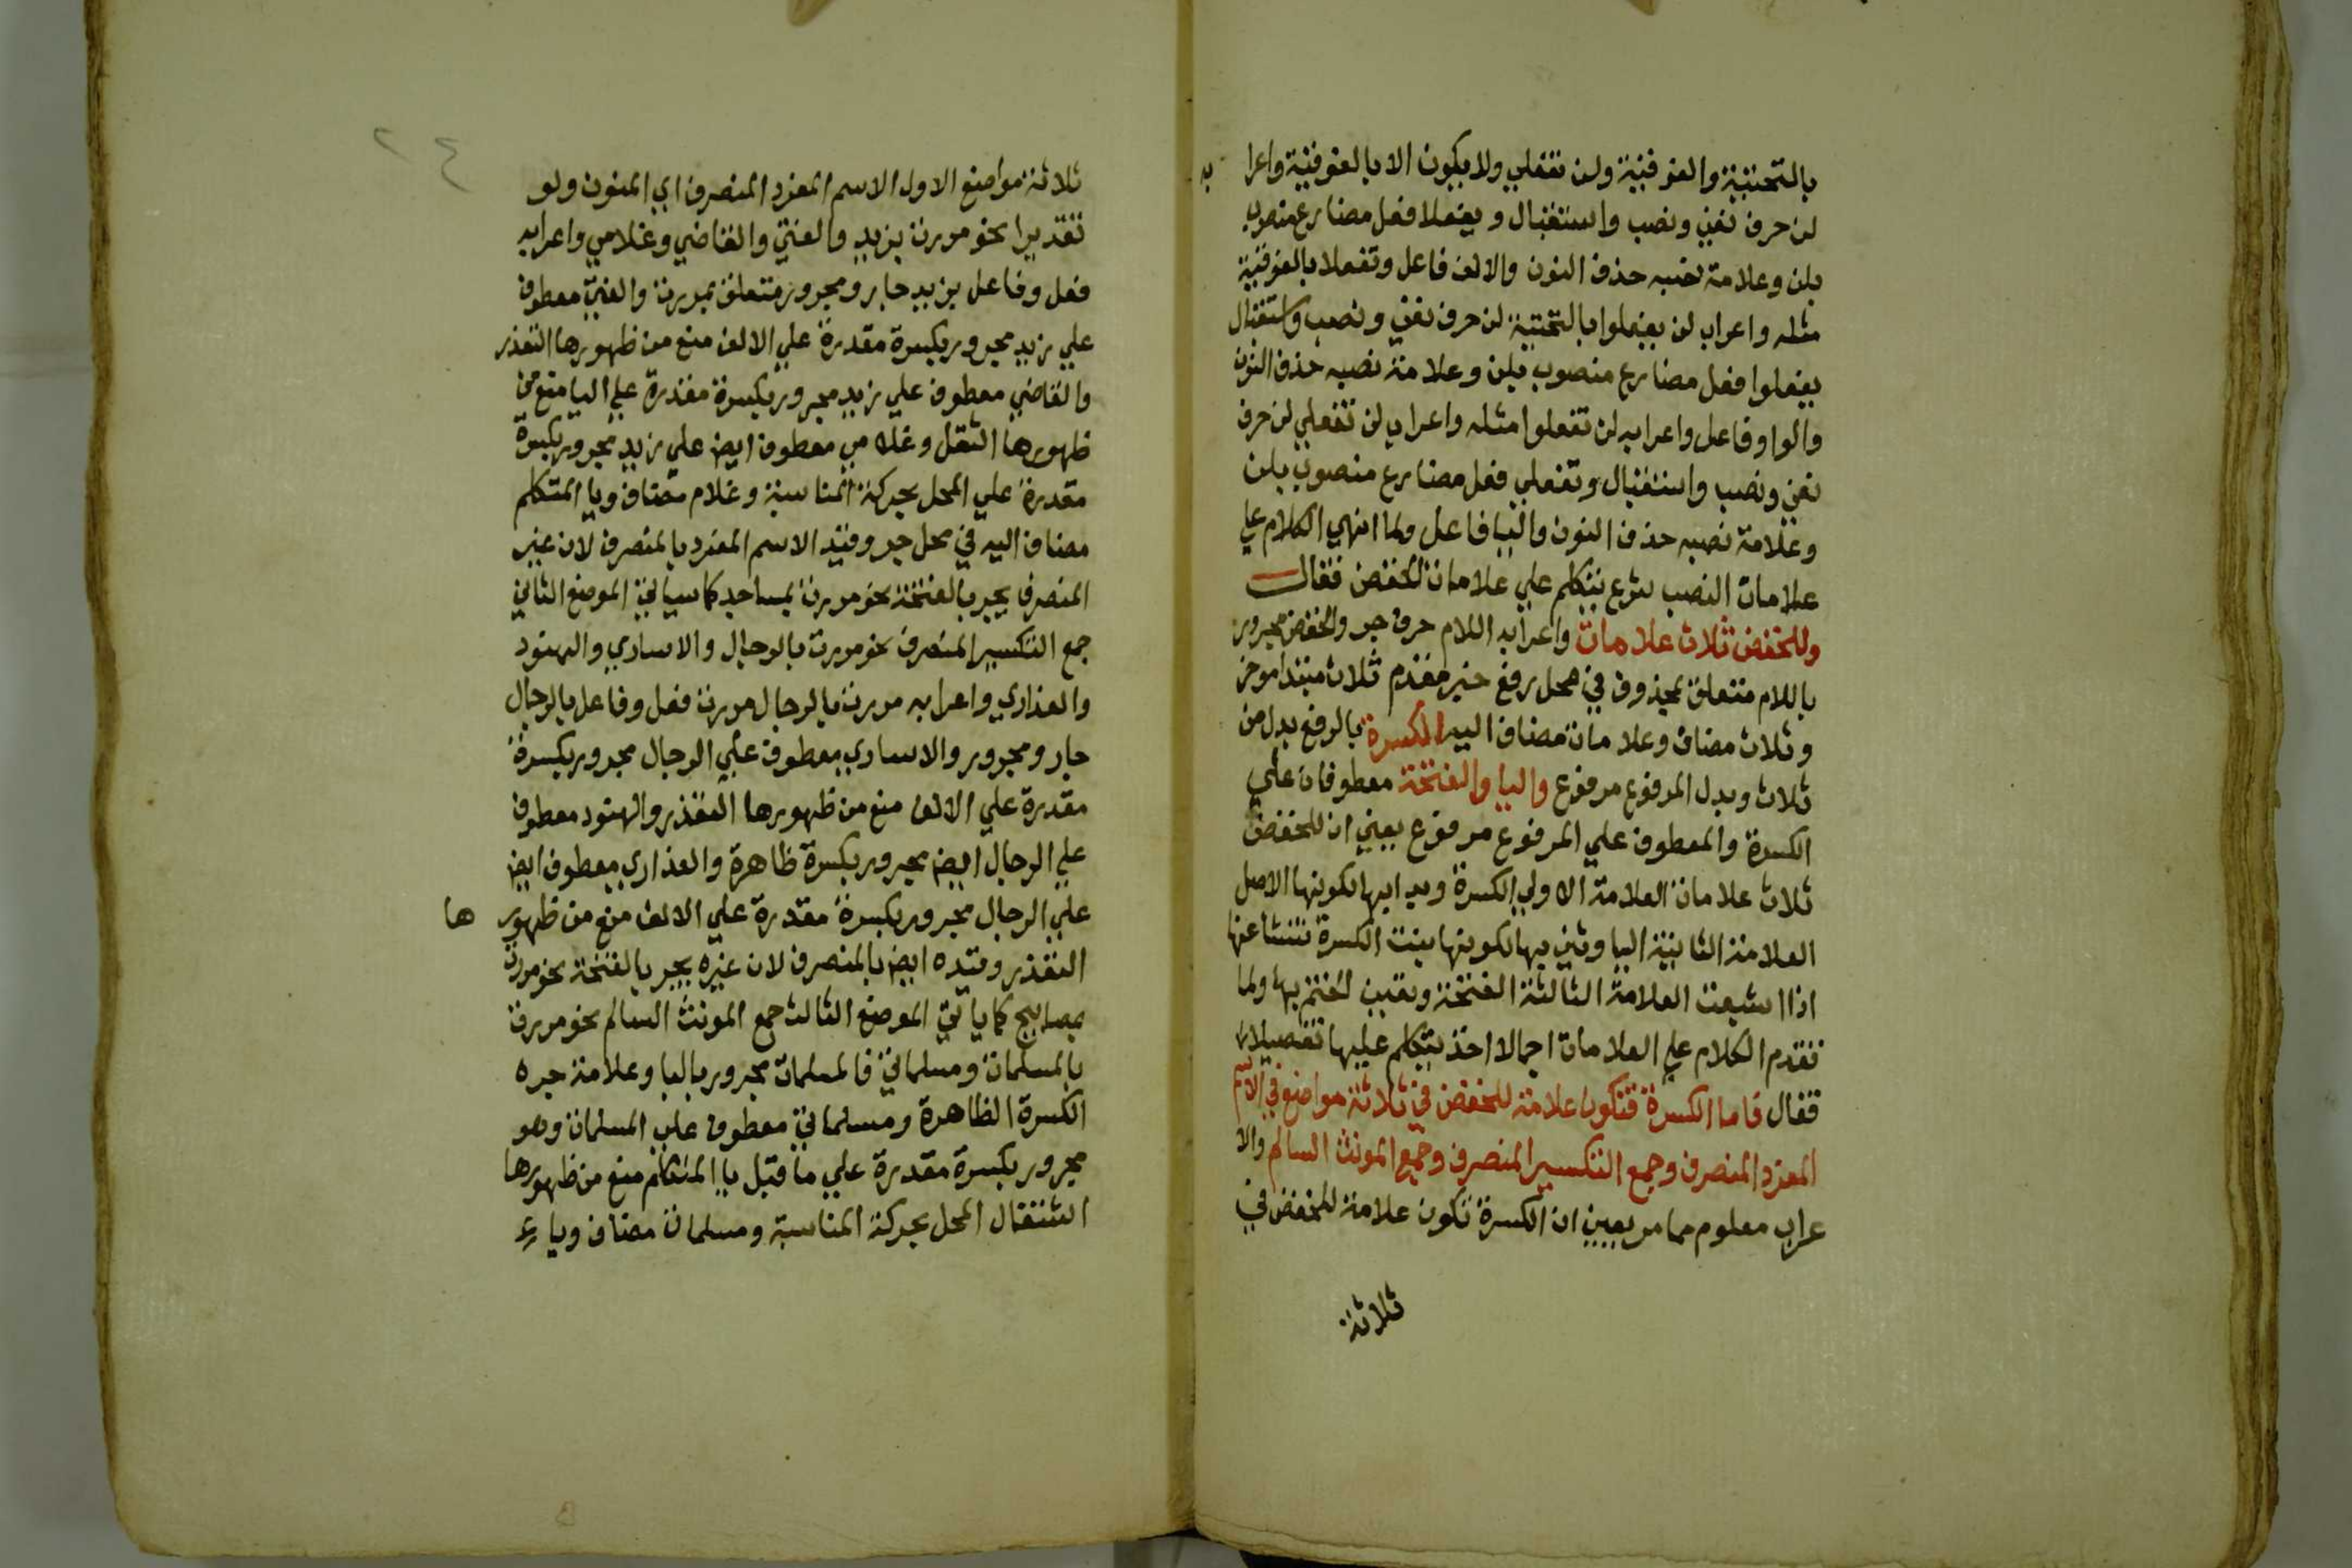 بالتحتية والفوقية ولن تفعلي ولا يكون الا بالفوقية واعرا به
لن حرف نفي ونصب واستقبال ويفعلا فعل مضارع منصوب
بلن وعلامة نصبه حذف النون والالف فاعل وتفعلا بالفوقية
مثله واعراب لن يفعلوا بالتحتية لن حرف نفي ونصب واستقبال
يفعلوا فعل مضارع منصوب بلن وعلامة نصبه حذف النون
والواو فاعل واعرابه لن تفعلوا مثله واعراب لن تفعلي لن حرف
نفي ونصب واستقبال وتفعلي فعل مضارع منصوب بلن
وعلامة نصبه حذف النون واليا فاعل ولما انهي الكلام علي
علامات النصب شرع يتكلم علي علامات الخفض فقال
وللخفض ثلاث علامات واعرابه اللام حرف جر والخفض مجرور
باللام متعلق بمحذوف في محل رفع خبر مقدم ثلاث مبتدا موخر
وثلاث مضاف وعلامات مضاف اليه الكسرة بالرفع بدل من
ثلاث وبدل المرفوع مرفوع واليا والفتحة معطوفان علي
الكسرة والمعطوف علي المرفوع مرفوع يعني ان للخفض
ثلاث علامات العلامة الاولي الكسرة وبدا بها لكونها الاصل
العلامة الثانية اليا وثني بها لكونها بنت الكسرة تنشا عنها
اذا اشبعت العلامة الثالثة الفتحة وتعين الختم بها ولما
تقدم الكلام علي العلامات اجمالا اخذ يتكلم عليها تفصيلا
فقال فاما الكسرة فتكون علامة للخفض في ثلاثة مواضع في الاسم
المفرد المنصرف وجمع التكسير المنصرف وجمع المونث السالم والا
عراب معلوم مما مر يعني ان الكسرة تكون علامة للخفض في
ثلاثة
٢٤
ثلاثة مواضع الاول الاسم المفرد المنصرف اي المنون ولو
تقديرا نحو مررت بزيد والفتي والقاضي وغلامي واعرابه
فعل وفاعل بزيد جار ومجرور متعلق بمررت والفتي معطوف
علي زيد مجرور بكسرة مقدرة علي الالف منع من ظهورها التعذر
والقاضي معطوف علي زيد مجرور بكسرة مقدرة علي اليا منع من
ظهورها الثقل وغلامي معطوف ايض علي زيد مجرور بكسرة
مقدرة علي المحل بحركة المناسبة وغلام مضاف ويا المتكلم
مضاف اليه في محل جر وقيد الاسم المفرد بالمنصرف لان غير
المنصرف يجر بالفتحة نحو مررت بمساجد كما سياتي الموضع الثاني
جمع التكسير المنصرف نحو مررت بالرجال والاساري والهنود
والعذاري واعرابه مررت بالرجال مررت فعل وفاعل بالرجال
جار ومجرور والاساري معطوف علي الرجال مجرور بكسرة
مقدرة علي الالف منع من ظهورها التعذر والهنود معطوف
علي الرجال ايض مجرور بكسرة ظاهرة والعذاري معطوف ايض
علي الرجال مجرور بكسرة مقدرة علي الالف منع من ظهور ها
التعذر وقيده ايض بالمنصرف لان غيره يجر بالفتحة نحو مررت
بمصابيح كما ياتي الموضع الثالث جمع المونث السالم نحو مررت
بالمسلمات ومسلماتي فالمسلمات مجرور بالبا وعلامة جره
الكسرة الظاهرة ومسلماتي معطوف علي المسلمات وهو
مجرور بكسرة مقدرة علي ما قبل يا المتكلم منع من ظهورها
اشتغال المحل بحركة المناسبة ومسلمات مضاف ويا